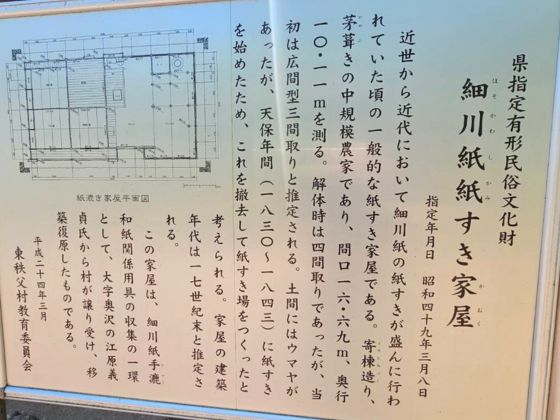 県指定有形民俗文化財
細川紙紙すき家屋
ほそかわ し かみ か おく
指定年月日 昭和四十九年三月八日
近世から近代において細川紙の紙すきが盛んに行わ
れていた頃の一般的な紙すき家屋である。寄棟造り、
茅葺きの中規模農家であり、間口一六・六九m、奥行
一〇・二一mを測る。解体時は四間取りであったが、当
初は広間型三間取りと推定される。土間にはウマヤが
あったが、天保年間（一八三〇〜一八四三）に紙すき
を始めたため、これを撤去して紙すき場をつくったと
考えられる。家屋の建築
年代は一七世紀末と推定さ
れる。
この家屋は、細川紙手漉
和紙関係用具の収集の一環
として、大字奥沢の江原義
貞氏から村が譲り受け、移
築復原したものである。
平成二十四年三月
東秩父村教育委員会
紙漉き家屋平面図